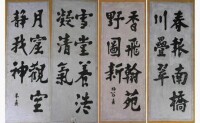 春報南橋
川疊翠
香飛翰苑
野圖新
雪堂養浩
凝清氣
月窟觀空
靜我神